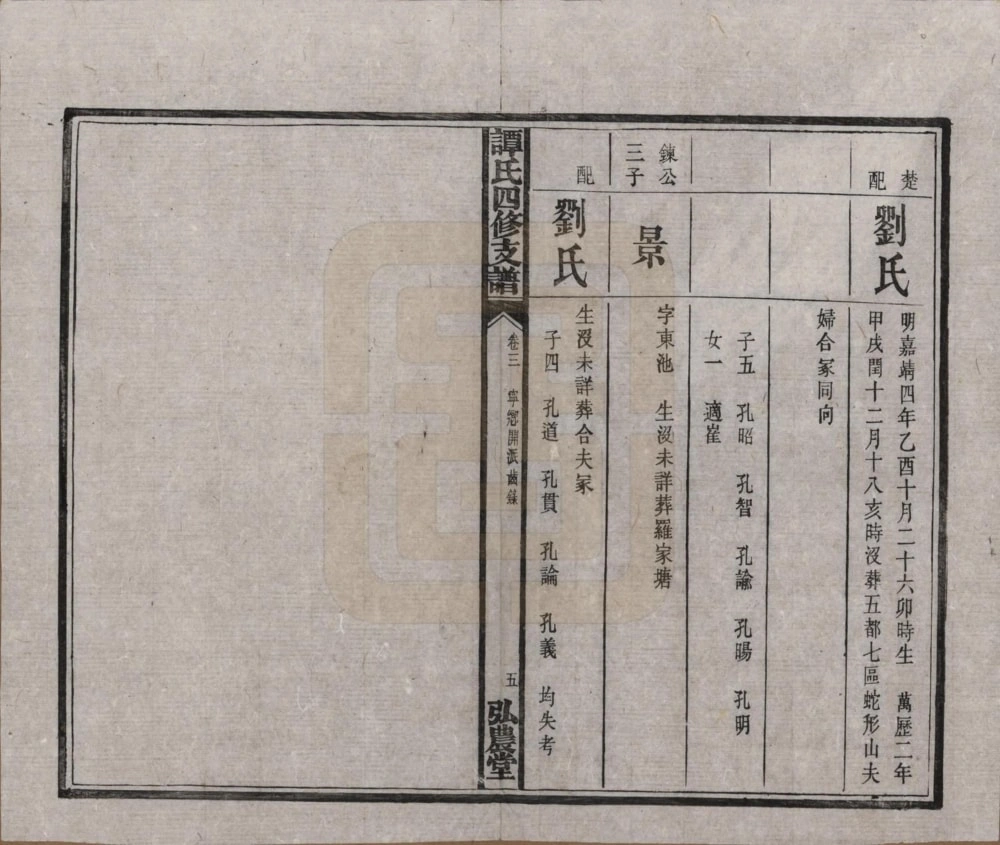 楚
配
劉氏
明嘉靖四年乙酉十月二十六卯時生 萬歷二年
甲戌閏十二月十八亥時沒葬五都七區蛇形山夫
婦合冢同向
子五 孔昭 孔智 孔諭 孔暘 孔明
女一 適崔
鍊公
三子
景
字東池 生沒未詳葬羅家塘
配
劉氏
生沒未詳葬合夫冢
子四 孔道 孔貫 孔論 孔義 均失考
譚氏四修支譜
卷三 寧鄉開派齒錄
五
弘農堂